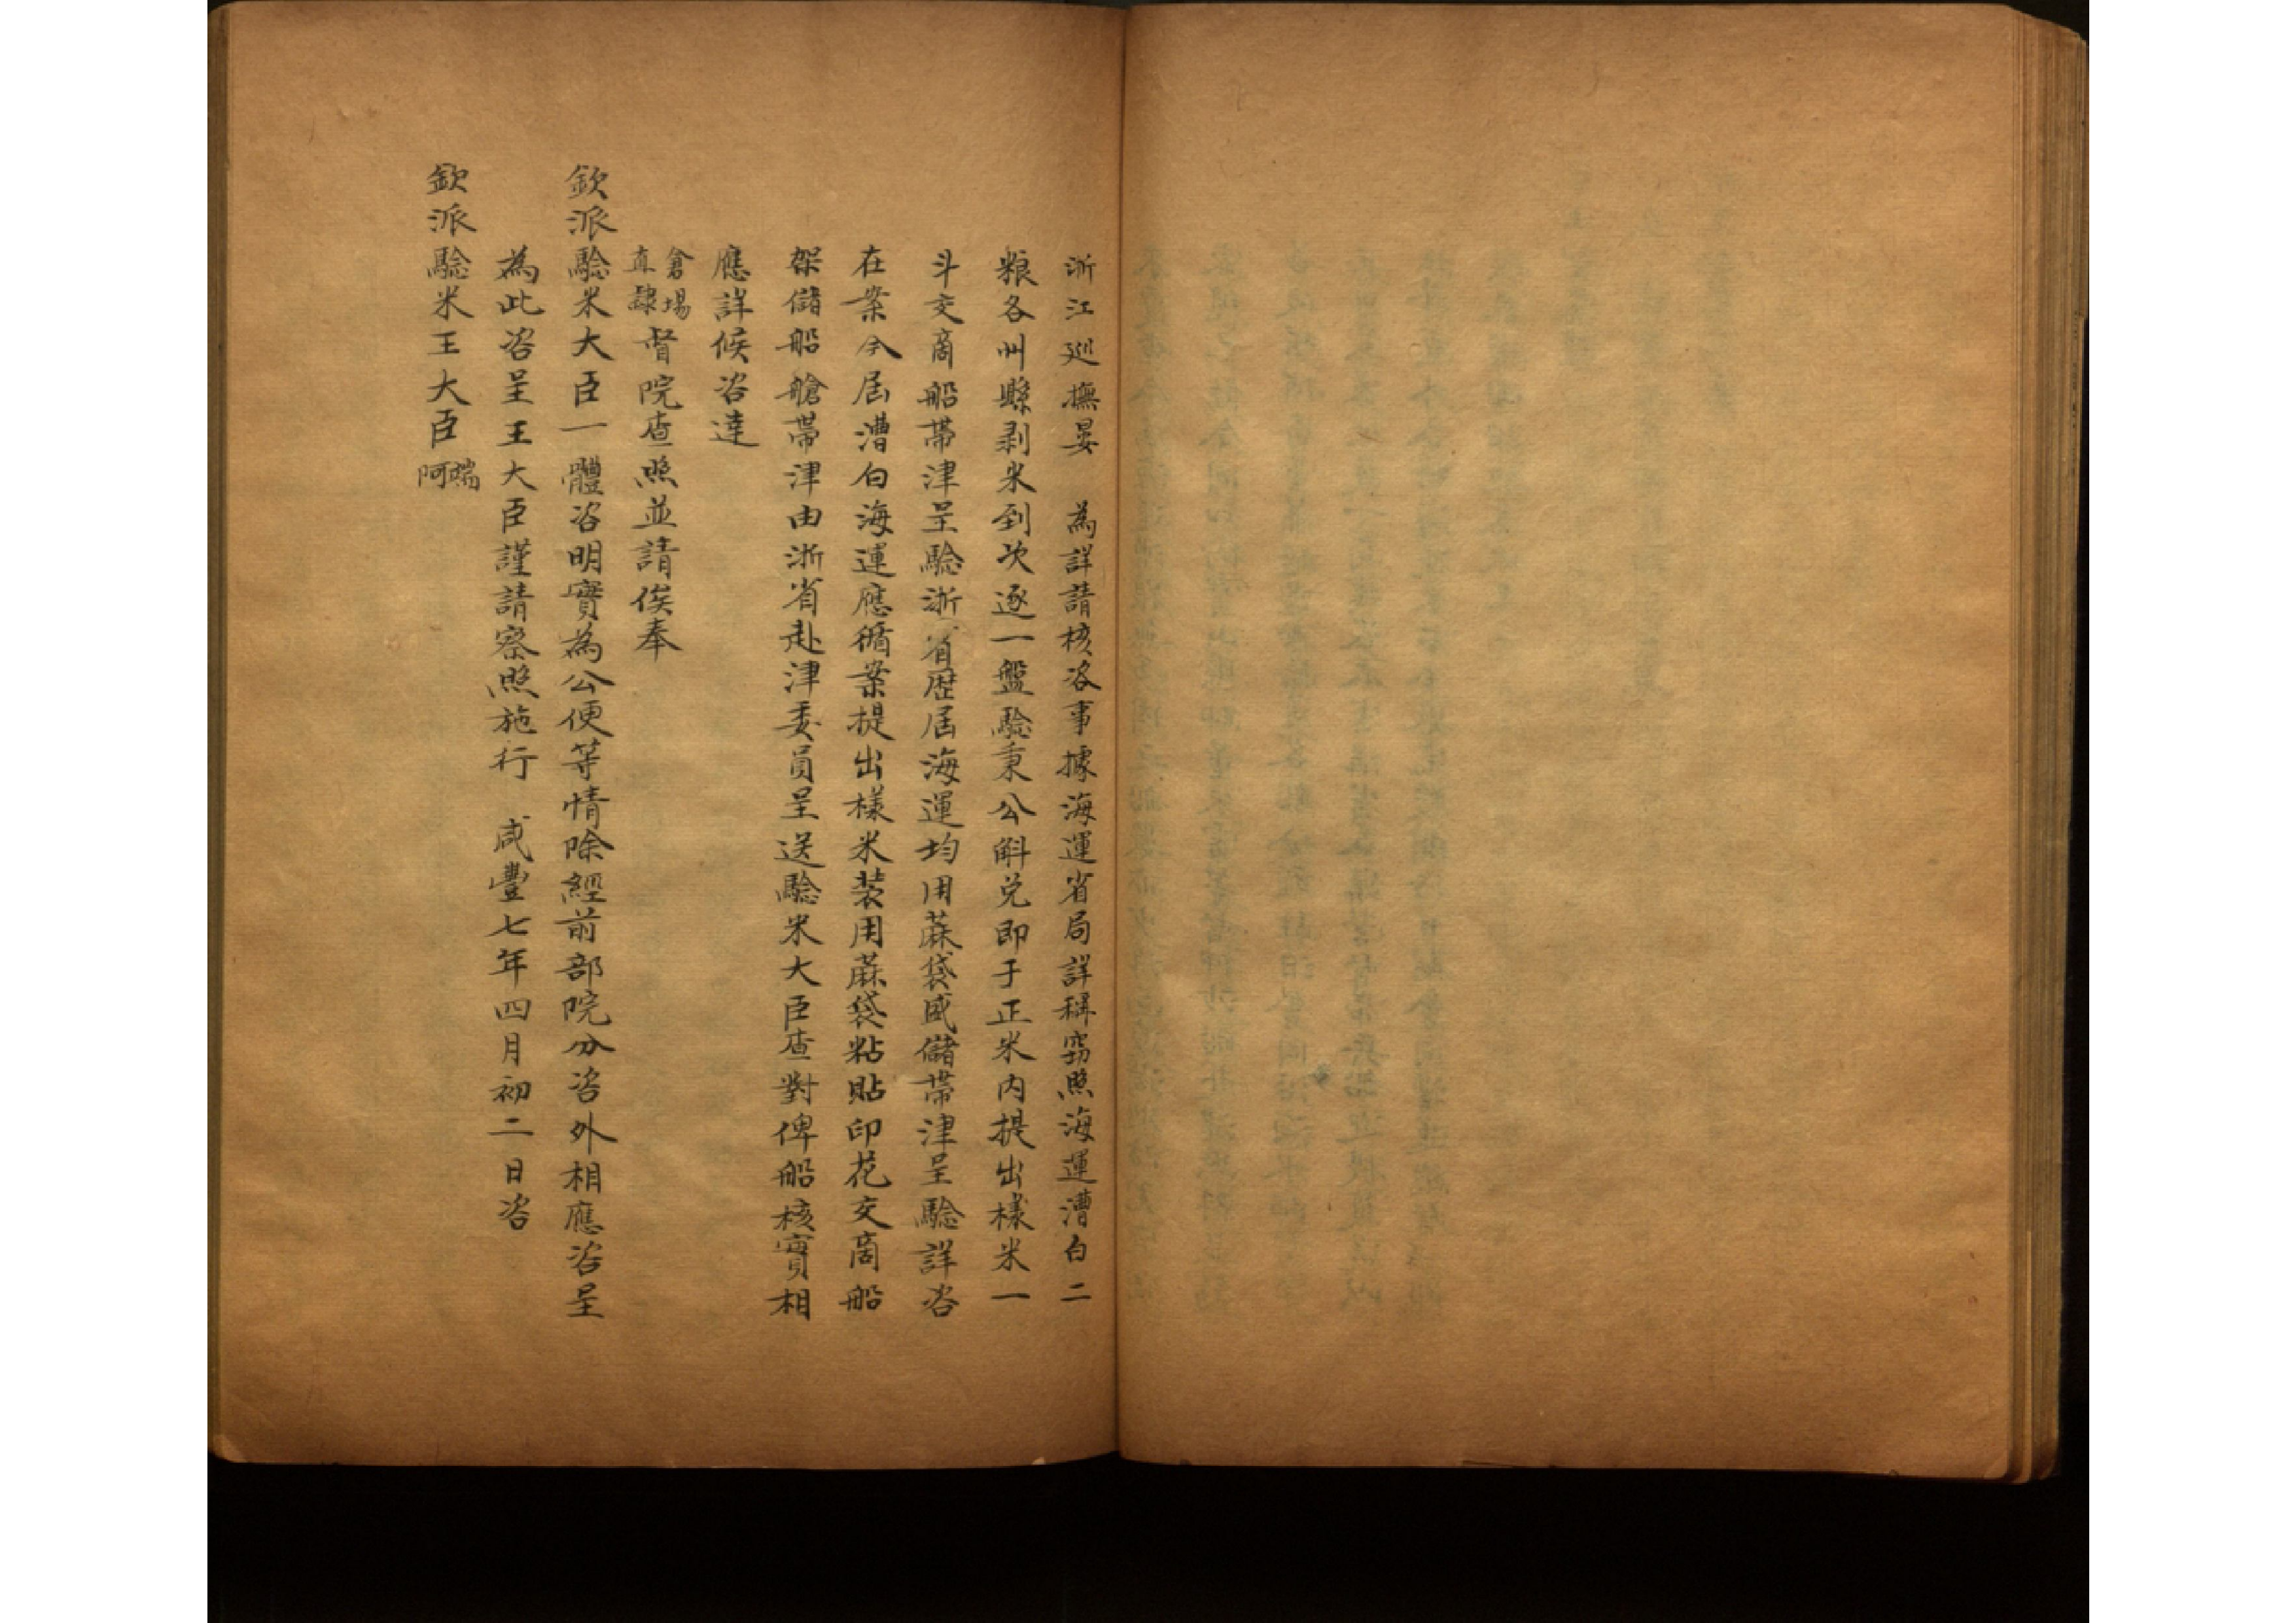 浙江巡撫晏　為詳請核咨事據海運省局詳稱竊照海運漕白二
粮各州縣剥米到次逐一盤驗秉公斛兑即于正米内提出樣米一
斗交商船帶津呈驗浙省歴届海運均用蔴袋盛儲帶津呈驗詳咨
在案今届漕白海運應循案提出樣米装用蔴袋粘貼印花交商船
架儲船艙帶津由浙省赴津委員呈送驗米大臣查對俾船核實相
應詳候咨達
倉場
直隸
督院查照並請俟奉
欽派驗米大臣一體咨明實為公便等情除經前部院分咨外相應咨呈
為此咨呈王大臣謹請察照施行　咸豐七年四月初二日咨
欽派驗米王大臣
端
阿